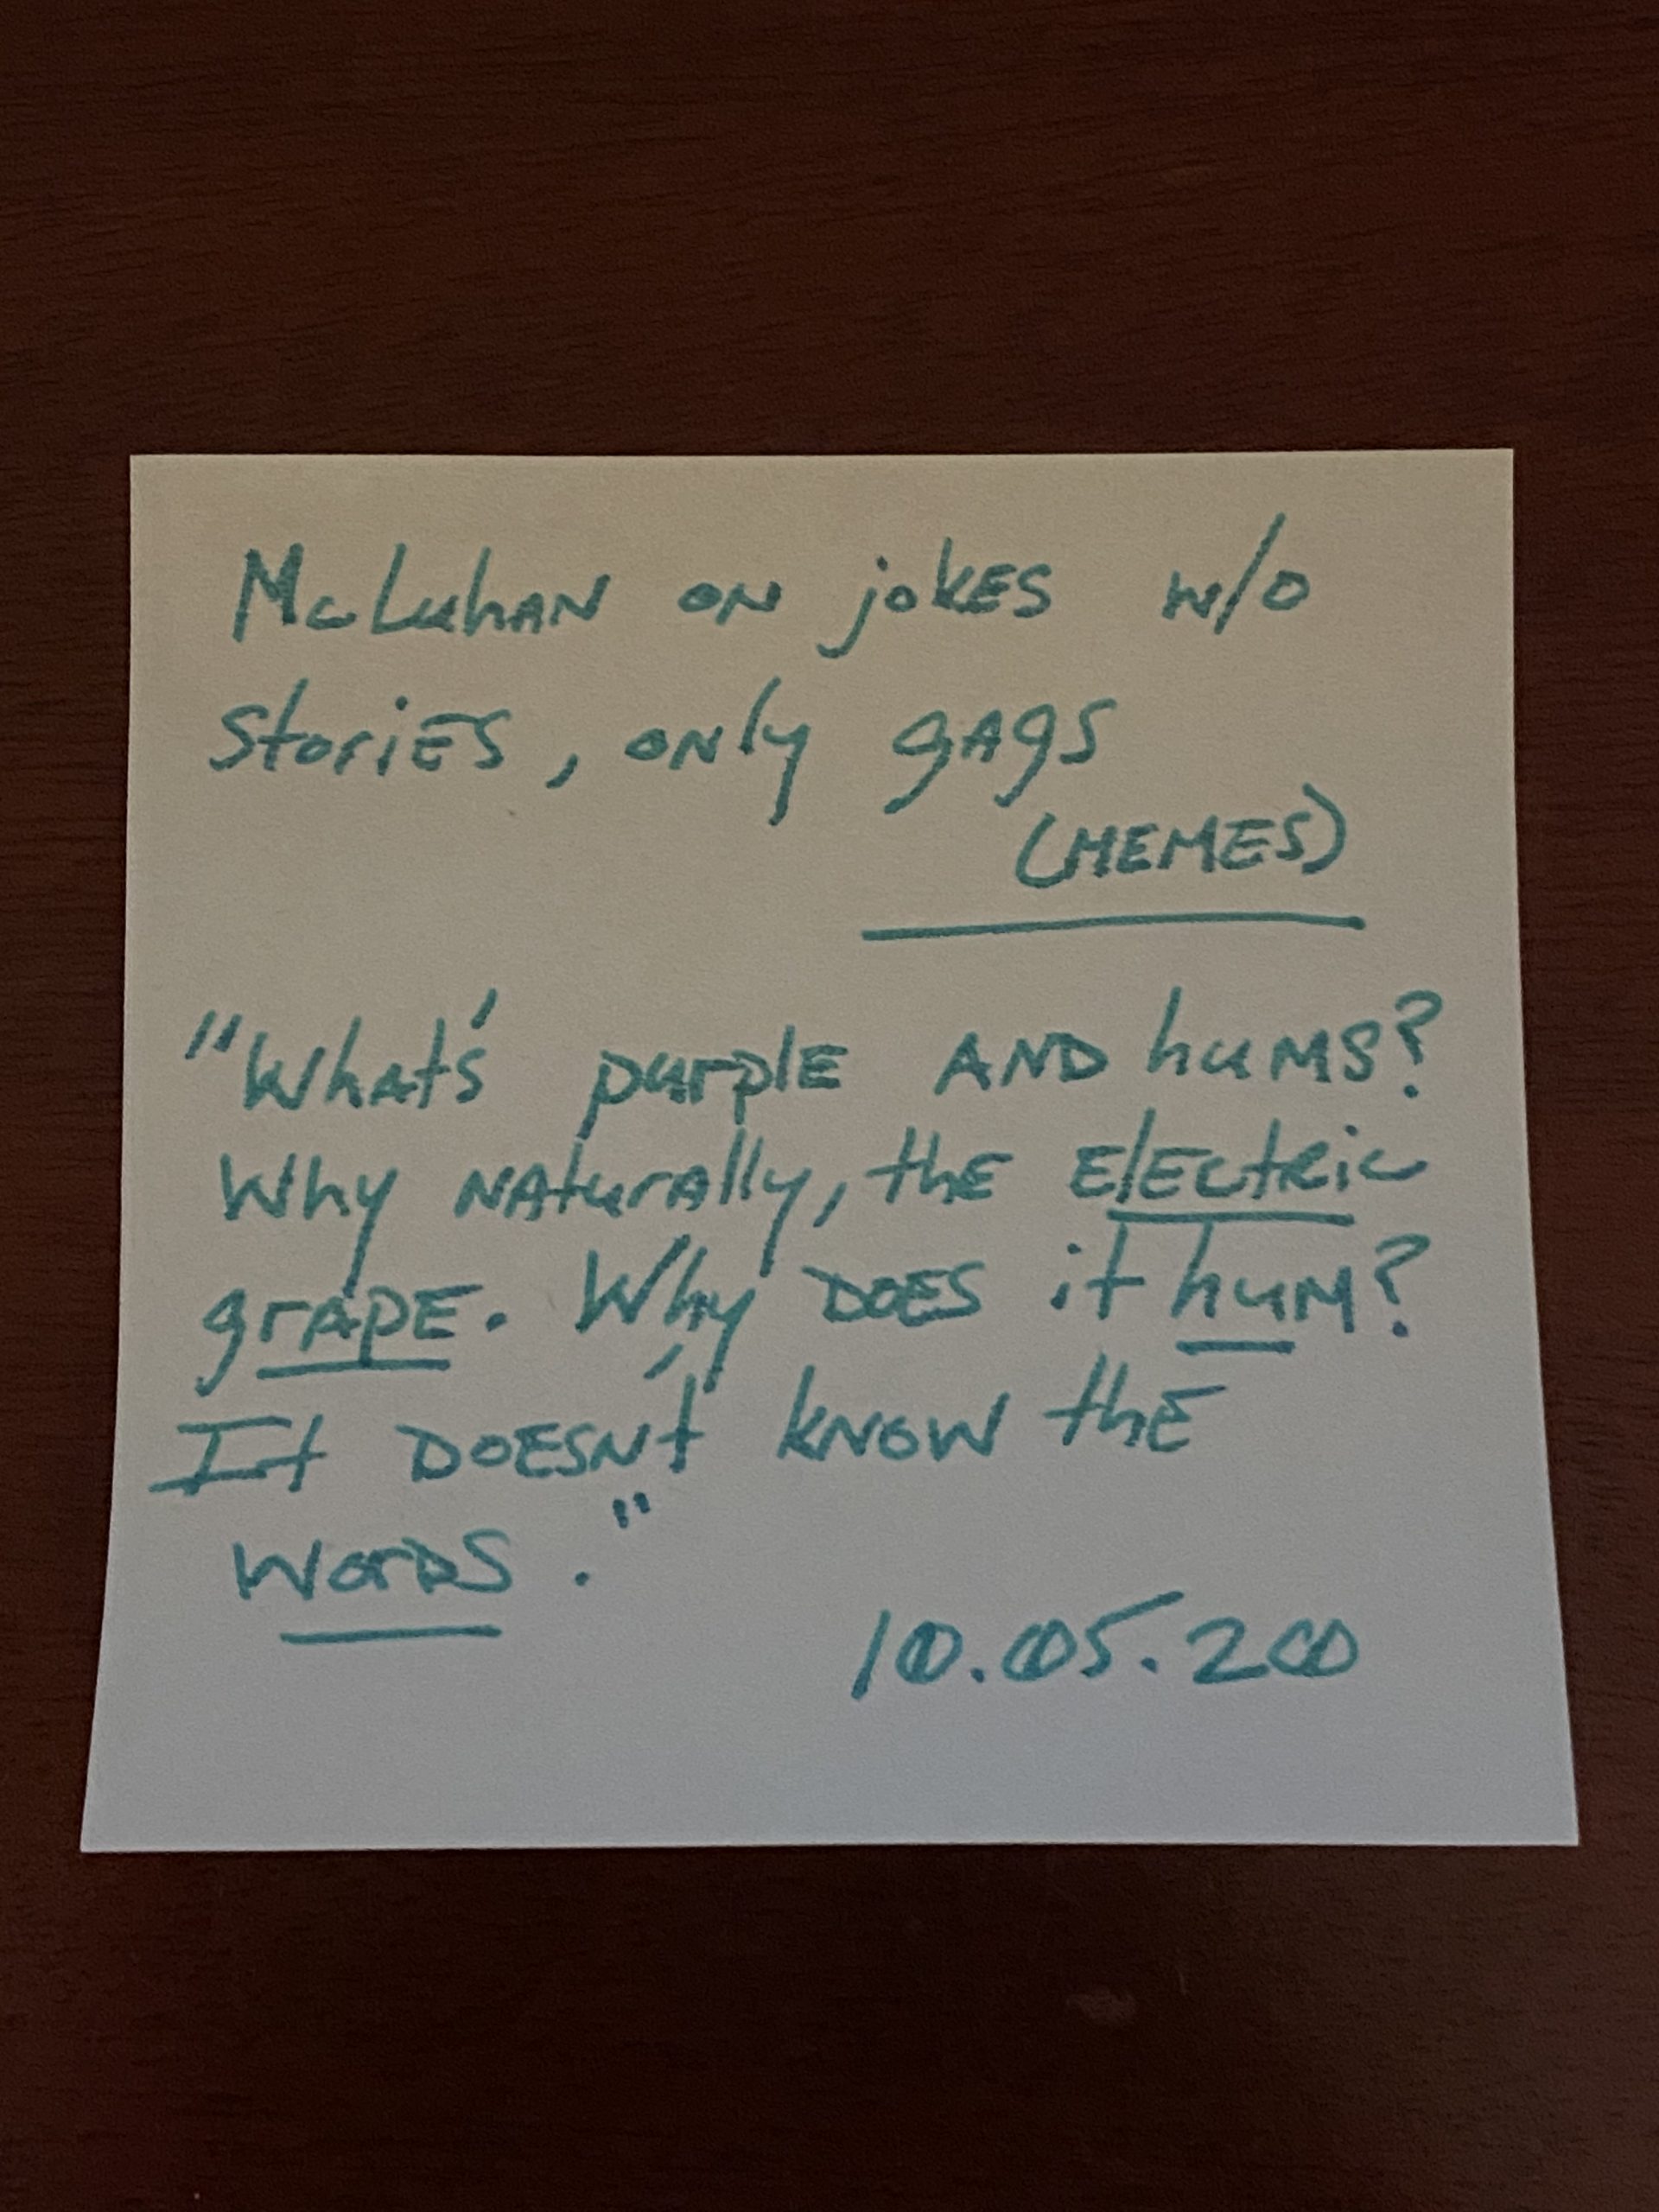 McLuhan on jokes w/o
stories, only gags
(MEMES)
"What's purple AND hums?
Why naturally, the electric
grape. Why does it hum?
It doesn't know the
words."
10.05.20